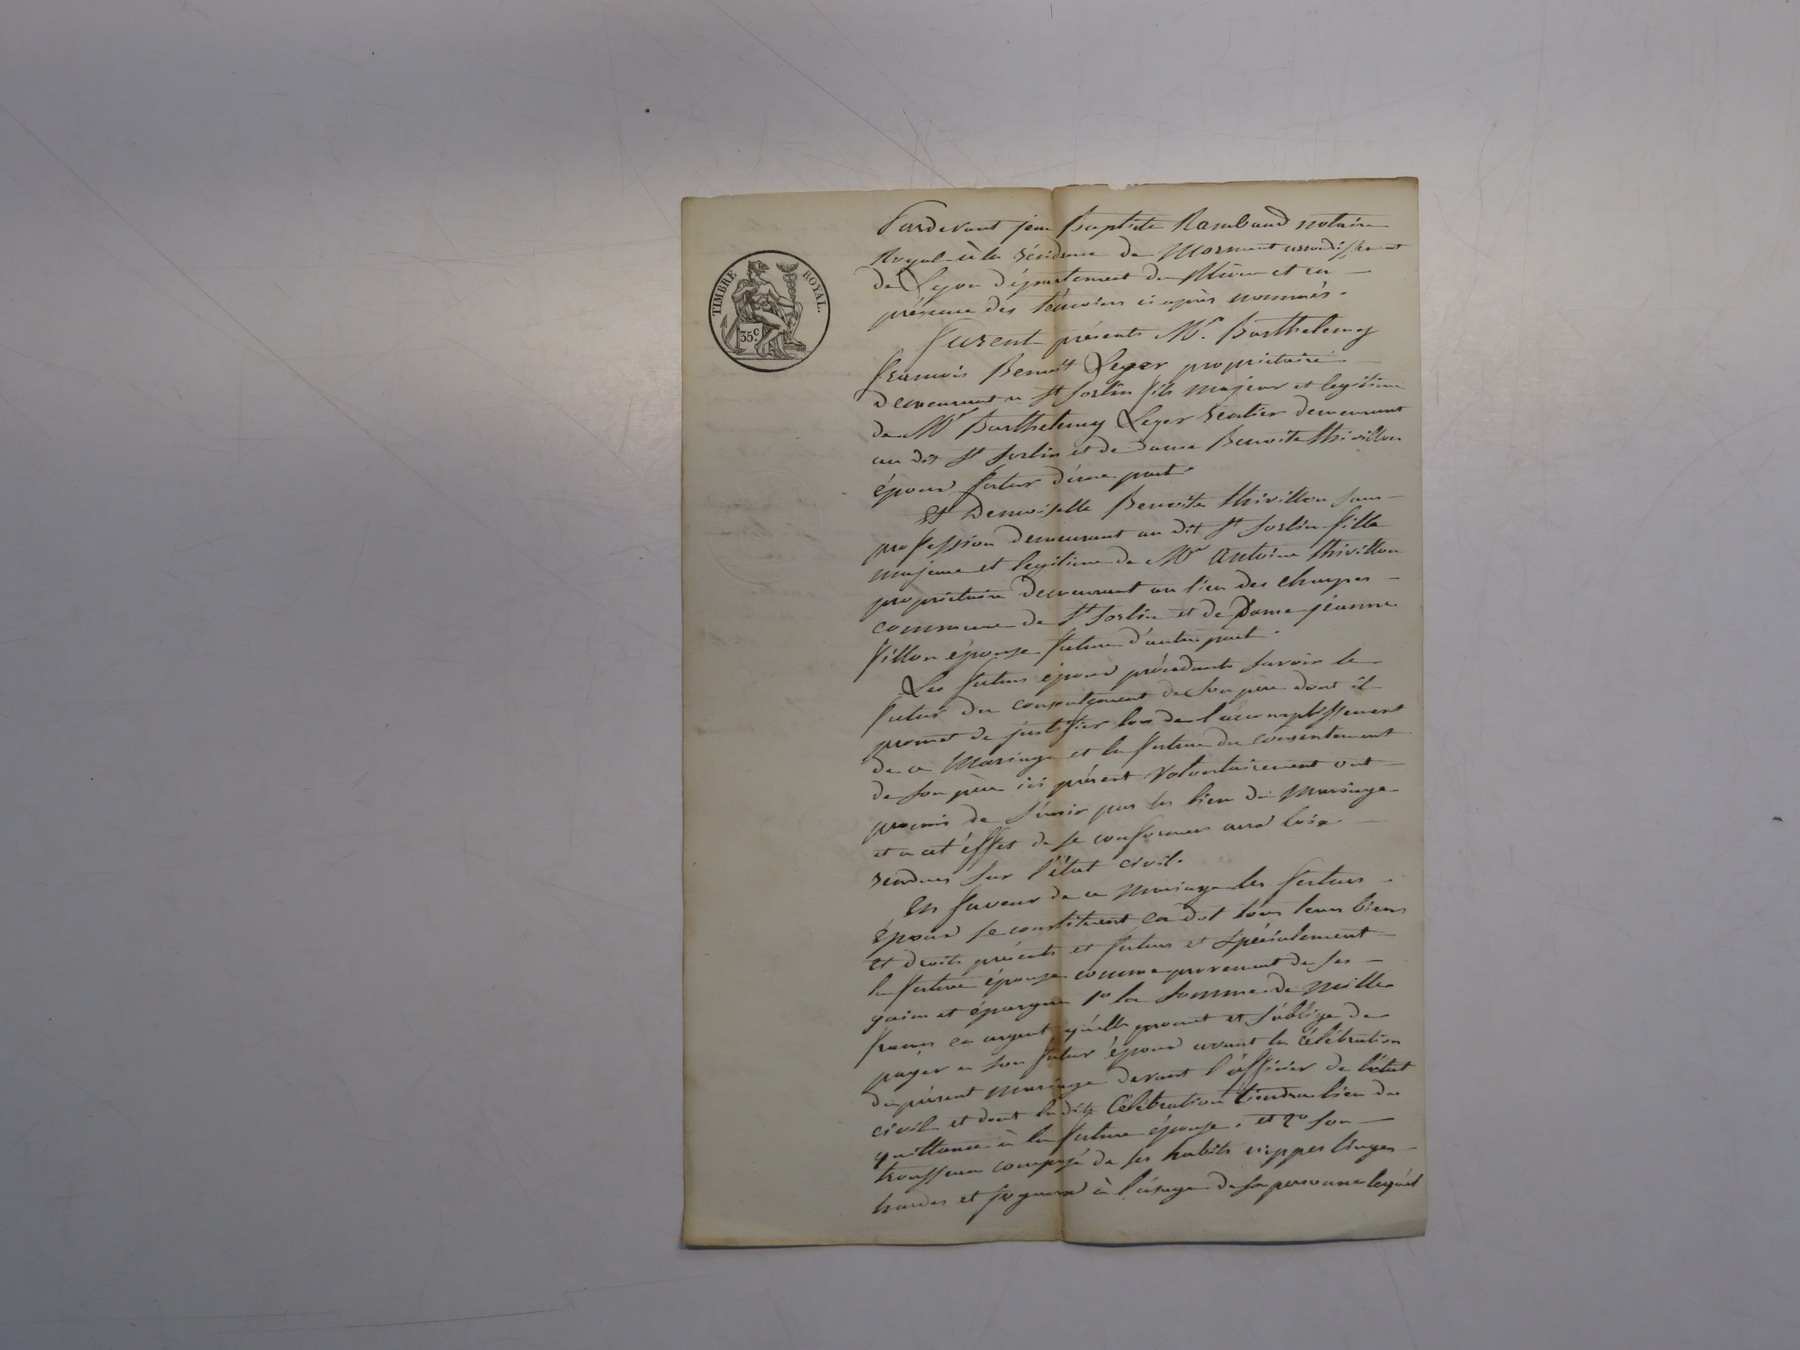 TIMBRE ROYAL.
35c.
Pardevant jean Baptiste Rambaud notaire
Royal à la résidence de Mornant arrondissement
de Lyon département du Rhône et en
présence des témoins ci après nommés.
Furent présents Mr. Barthelemy
françois Benoit Leger propriétaire
demeurant a St Sorlin fils majeur et legitime
de Mr Barthelemy Leger rentier demeurant
au dit St Sorlin et de dame Benoite thivillon
époux futur d'une part
Et Demoiselle Benoite thivillon sans
profession demeurant au dit St Sorlin fille
majeure et legitime de Mr Antoine thivillon
propriétaire demeurant au lieu des
commune de St Sorlin et de Dame jéanne
fillon épouse future d'autre part.
Les futurs époux procédants savoir le
futur du consentement de son père dont il
promet de justifier lors de l'accomplissement
de ce Mariage et la future du consentement
de son père ici présent volontairement ont
promis de s'unir par les lien du Mariage
et a cet éffet de se conformer aux loix
rendues sur l'état civil.
En faveur de ce mariage les futurs
époux se constituent en dot tous leurs biens
et droits présents et futurs et spécialement
la future épouse comme provenant de ses
gain et épargne 1o la somme de mille
francs en argent qu'elle promet et s'oblige de
payer a son futur époux avant la célébration
du présent mariage devant l'officier de l'état
civil et dont la dite Célébration tiendra lieu de
quittance à la future épouse, et 2o son
trousseau composé de ses habits nippes linges
hardes et joyaux à l'usage de sa personne lequel